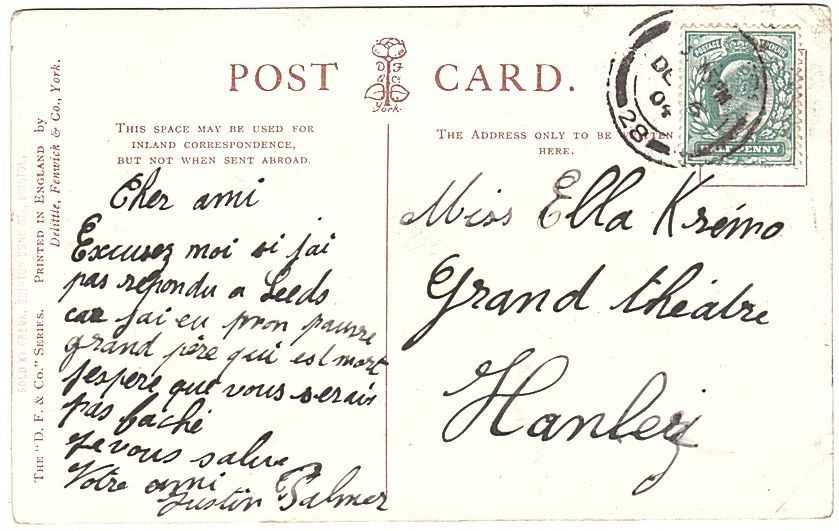 POST CARD.
D F & Co
York.
THIS SPACE MAY BE USED FOR
INLAND CORRESPONDENCE,
BUT NOT WHEN SENT ABROAD.
THE ADDRESS ONLY TO BE WRITTEN
HERE.
POSTAGE REVENUE
HALFPENNY
DE
04
28
Cher ami
Excusez moi si jai
pas répondu a Leeds
car jai eu mon pauvre
grand père qui est mort
Jespère que vous serais
pas faché
Je vous salue
Votre ami
Justin Palmer
Miss Ella Krémo
Grand théâtre
Hanley
THE "D. F. & CO." SERIES. PRINTED IN ENGLAND by
Delittle, Fenwick & Co., York.